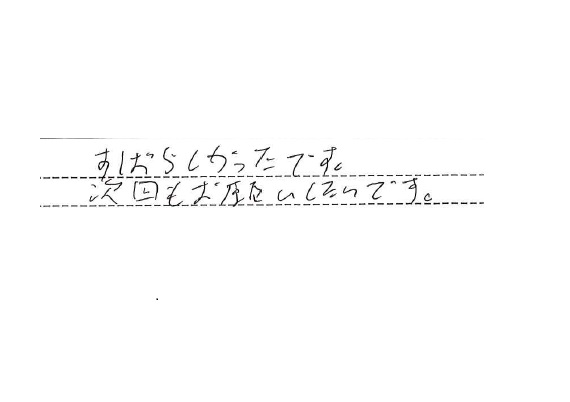 すばらしかったです。
次回もお願いしたいです。